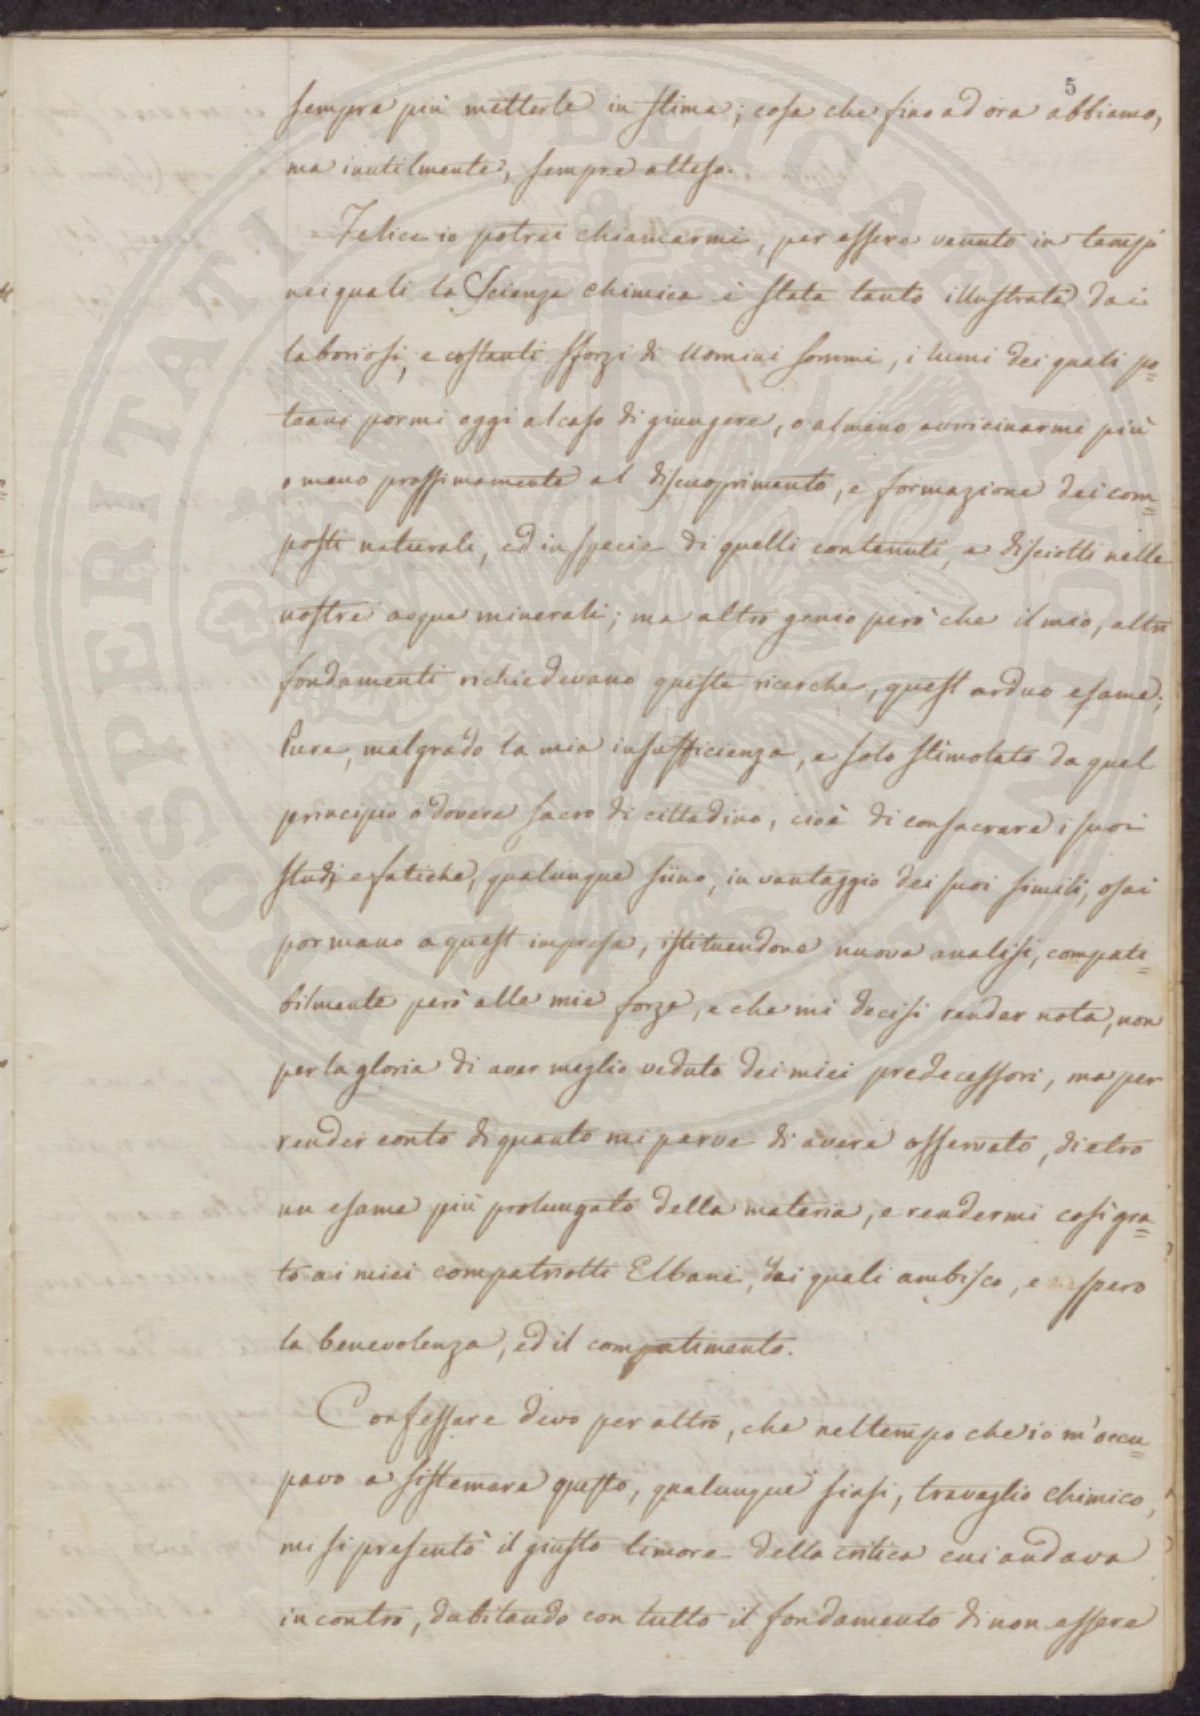 5
sempre più metterle in stima; cosa che fino ad ora abbiamo,
ma inutilmente, sempre atteso.
Felice io potrei chiamarmi, per essere venuto in tempi
nei quali la Scienza chimica è stata tanto illustrata dai
laboriosi, e costanti sforzi di Uomini sommi, i lumi dei quali po=
teano pormi oggi al caso di giungere, o almeno avvicinarme più
o meno prossimamente al discuoprimento, e formazione dei com=
posti naturali, ed in specie di quelli contenuti, e disciolti nelle
nostre acque minerali; ma altro genio però che il mio, altri
fondamenti richiedevano queste ricerche, quest arduo esame;
Pure, malgrado la mia insufficienza, e solo stimolato da quel
principio o dovere sacro di cittadino, cioè di consacrare i suoi
studj e fatiche, qualunque siino, in vantaggio dei suoi simili, osai
por mano a quest impresa, istituendone nuova analisi, compati=
bilmente però alle mie forze, e che mi decisi render nota, non
per la gloria di aver meglio veduto dei miei predecessori, ma per
render conto di quanto mi parve di avere osservato, dietro
un esame più prolungato della materia, e rendermi così gra=
to ai miei compatriotti Elbani, dai quali ambisco, e spero
la benevolenza, ed il compatimento.
Confessare devo per altro, che nel tempo che io m'occu=
pavo a sistemare questo, qualunque siasi, travaglio chimico,
mi si presentò il giusto timore della critica cui andava
incontro, dubitando con tutto il fondamento di non essere
PROSPERITATI PVBLICAE AVGENDAE